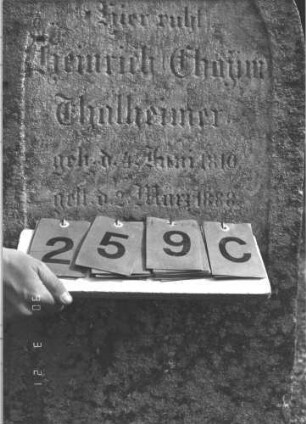 Hier ruht
Heinrich Chajim
Thalheimer
geb. d. 4. Juni 1810
gest. d. 2. März 1888
259C